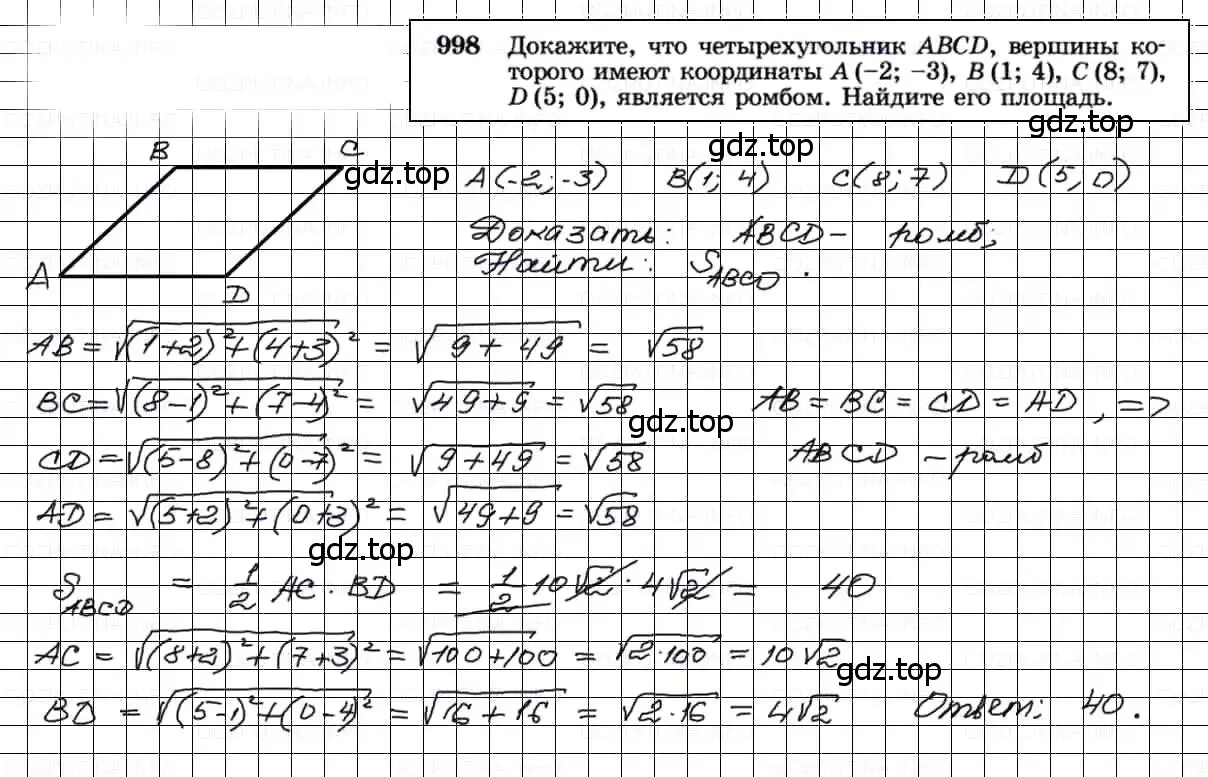 998 Докажите, что четырехугольник ABCD, вершины ко-
торого имеют координаты A (−2; −3), B (1; 4), C (8; 7),
D (5; 0), является ромбом. Найдите его площадь.
gdz.top
B C
gdz.top
A(-2; -3) B(1; 4) C(8; 7) D(5, 0)
Доказать: ABCD - ромб;
Найти: S_ABCD.
A
D
AB = √(1+2)²+(4+3)² = √9 + 49 = √58
BC = √(8-1)²+(7-4)² = √49+9 = √58 AB = BC = CD = AD, =>
gdz.top
CD = √(5-8)²+(0-7)² = √9+49 = √58 ABCD - ромб
AD = √(5+2)²+(0+3)² = √49+9 = √58
gdz.top
S_ABCD = 1/2 AC · BD = 1/2 10√2 · 4√2 = 40
AC = √(8+2)²+(7+3)² = √100+100 = √2·100 = 10√2
gdz.top
BD = √(5-1)²+(0-4)² = √16 + 16 = √2·16 = 4√2 Ответ: 40.